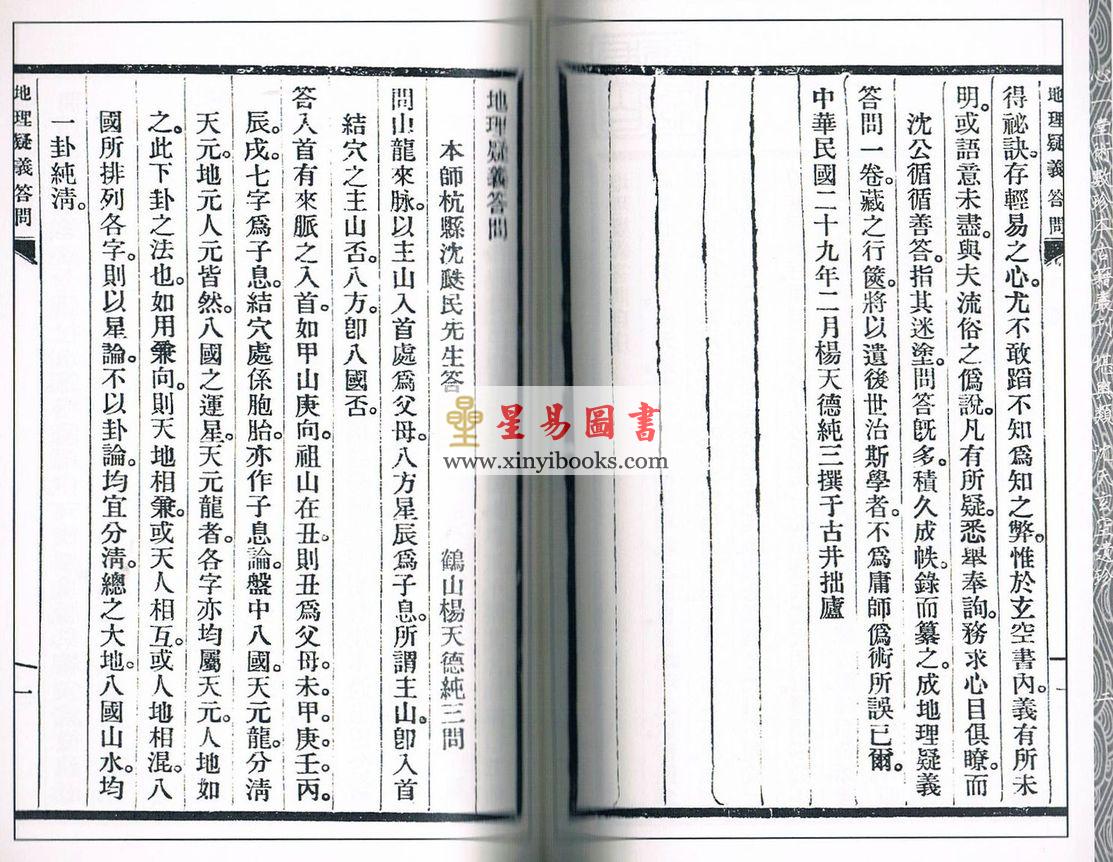 地理疑義答問
得祕訣。存輕易之心。尤不敢蹈不知爲知之弊。惟於玄空書內。義有所未
明。或語意未盡。與夫流俗之僞說。凡有所疑。悉舉奉詢。務求心目俱瞭。而
沈公循循善答。指其迷塗。問答旣多。積久成帙。錄而纂之。成地理疑義
答問一卷。藏之行篋。將以遺後世治斯學者。不爲庸師僞術所誤已爾。
中華民國二十九年二月楊天德純三撰于古井拙廬
一
地理疑義答問
本師杭縣沈瓞民先生答 鶴山楊天德純三問
問山龍來脉。以主山入首處爲父母。八方星辰爲子息。所謂主山。卽入首
結穴之主山否。八方卽八國否。
答入首有來脈之入首。如甲山庚向。祖山在丑。則丑爲父母。未。甲。庚。壬。丙。
辰。戌。七字爲子息。結穴處係胞胎。亦作子息論。盤中八國。天元龍。分淸
天元。地元人元皆然。八國之運星。天元龍者。各字亦均屬天元。人地如
之。此下卦之法也。如用兼向。則天地相兼。或天人相互。或人地相混。八
國所排列各字。則以星論。不以卦論。均宜分淸。總之大地。八國山水。均
一卦純淸。
地理疑義答問
一
星易圖書
www.xinyibooks.com